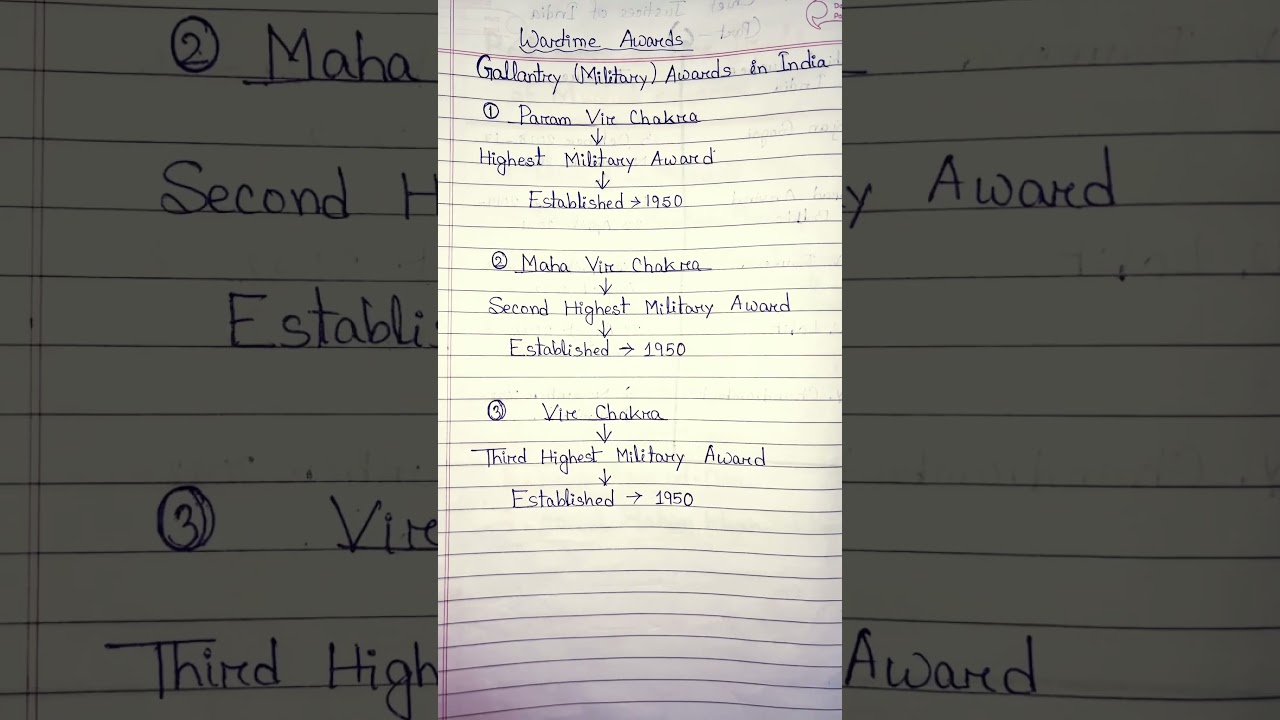 Wartime Awards
Gallantry (Military) Awards in India
① Param Vir Chakra
↓
Highest Military Award
↓
Established → 1950
② Maha Vir Chakra
↓
Second Highest Military Award
↓
Established → 1950
③ Vir Chakra
↓
Third Highest Military Award
↓
Established → 1950
② Maha
Second H
y Award
Establis
③ Vir
Third High
Award